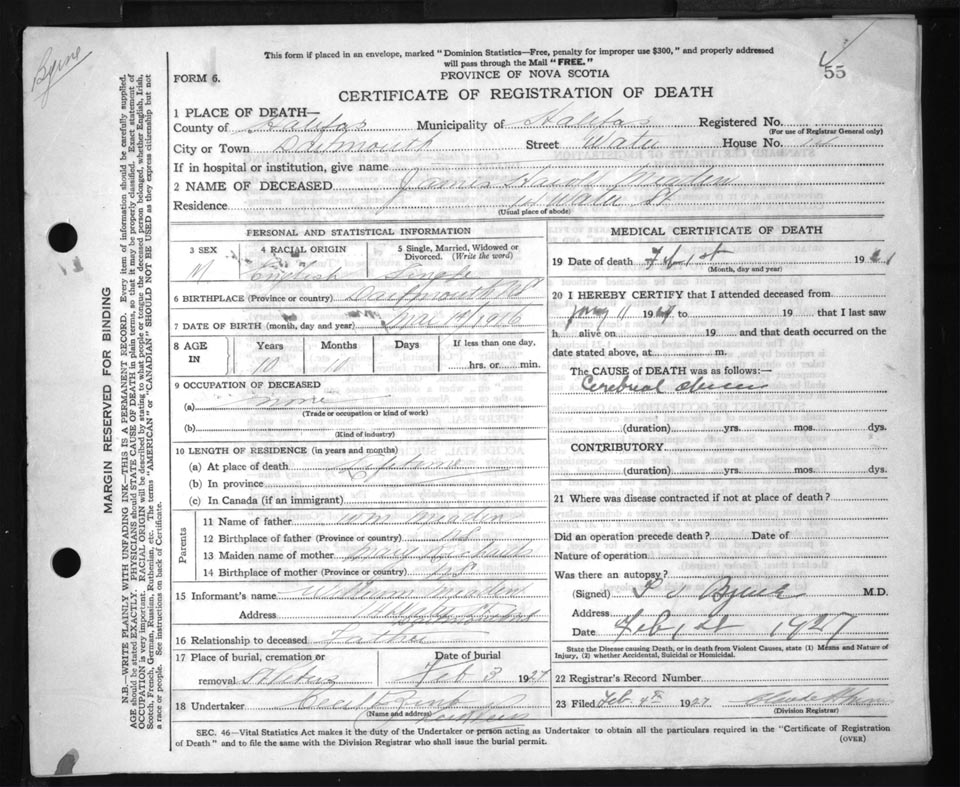 Byrne
This form if placed in an envelope, marked "Dominion Statistics—Free, penalty for improper use $300," and properly addressed
will pass through the Mail "FREE."
PROVINCE OF NOVA SCOTIA
FORM 6.
55
CERTIFICATE OF REGISTRATION OF DEATH
MARGIN RESERVED FOR BINDING
N.B.—WRITE PLAINLY WITH UNFADING INK—THIS IS A PERMANENT RECORD. Every item of information should be carefully supplied.
AGE should be stated EXACTLY. PHYSICIANS should STATE CAUSE OF DEATH in plain terms, so that it may be properly classified. Exact statement of
OCCUPATION is very important. RACIAL ORIGIN will be described by stating to what people or tongue the deceased person belonged, whether English, Irish,
Scotch, French, German, Russian, Ruthenian, etc. The terms "AMERICAN" or "CANADIAN" SHOULD NOT BE USED as they express citizenship but not
a race or people. See instructions on back of Certificate.
1 PLACE OF DEATH—
County of Halifax Municipality of Halifax Registered No.
(For use of Registrar General only)
City or Town Dartmouth Street Water House No.
If in hospital or institution, give name
2 NAME OF DECEASED James Harold Meaden
Residence Water St
(Usual place of abode)
PERSONAL AND STATISTICAL INFORMATION
3 SEX 4 RACIAL ORIGIN 5 Single, Married, Widowed or
Divorced. (Write the word)
M English Single
6 BIRTHPLACE (Province or country) Dartmouth NS
7 DATE OF BIRTH (month, day and year) 1916
8 AGE IN Years Months Days If less than one day,
10 11 hrs. or min.
9 OCCUPATION OF DECEASED
(a) none
(Trade or occupation or kind of work)
(b)
(Kind of industry)
10 LENGTH OF RESIDENCE (in years and months)
(a) At place of death Lifetime
(b) In province
(c) In Canada (if an immigrant)
Parents
11 Name of father Wm Meaden
12 Birthplace of father (Province or country) NS
13 Maiden name of mother
14 Birthplace of mother (Province or country) NS
15 Informant's name William Meaden
Address
16 Relationship to deceased Father
17 Place of burial, cremation or Date of burial
removal St Peters Feb 3 1927
18 Undertaker
(Name and address)
MEDICAL CERTIFICATE OF DEATH
19 Date of death Feb 1st 19
(Month, day and year)
20 I HEREBY CERTIFY that I attended deceased from
11 19 to 19 that I last saw
h alive on 19 and that death occurred on the
date stated above, at m.
The CAUSE of DEATH was as follows:—
Cerebral Abscess
(duration) yrs. mos. dys.
CONTRIBUTORY
(duration) yrs. mos. dys.
21 Where was disease contracted if not at place of death?
Did an operation precede death? Date of
Nature of operation
Was there an autopsy?
(Signed) Byrne M.D.
Address
Date Feb 1927
State the Disease causing Death, or in death from Violent Causes, state (1) Means and Nature of
Injury, (2) whether Accidental, Suicidal or Homicidal.
22 Registrar's Record Number
23 Filed Feb. 4th 1927
(Division Registrar)
SEC. 46—Vital Statistics Act makes it the duty of the Undertaker or person acting as Undertaker to obtain all the particulars required in the "Certificate of Registration
of Death" and to file the same with the Division Registrar who shall issue the burial permit.
(OVER)